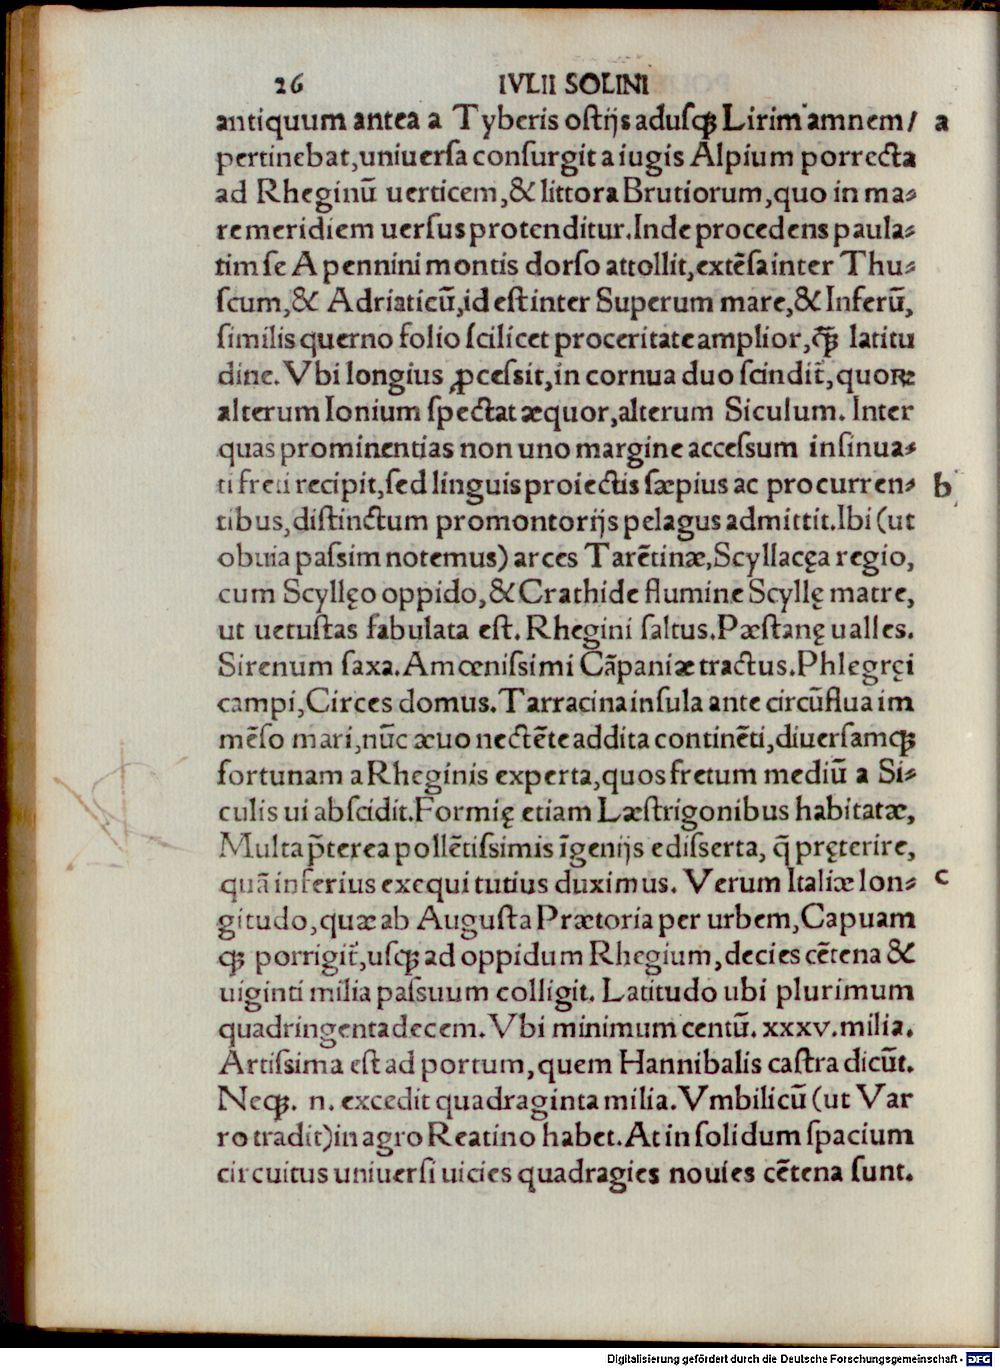 26 IVLII SOLINI
antiquum antea a Tyberis ostijs adusqꝫ Lirim amnem/ a
pertinebat,uniuersa consurgit a iugis Alpium porrecta
ad Rheginū uerticem,& littora Brutiorum,quo in ma⸗
re meridiem uersus protenditur.Inde procedens paula⸗
tim se Apennini montis dorso attollit,extēsa inter Thu⸗
scum,& Adriaticū,id est inter Superum mare,& Inferū,
similis querno folio scilicet proceritate amplior,q̄ꝫ latitu
dine.Vbi longius ꝓcessit,in cornua duo scindit̄,quoꝝ
alterum Ionium spectat æquor,alterum Siculum.Inter
quas prominentias non uno margine accessum insinua⸗
ti freti recipit,sed linguis proiectis sæpius ac procurren⸗ b
tibus,distinctum promontorijs pelagus admittit.Ibi (ut
obuia passim notemus) arces Tarētinæ,Scyllacęa regio,
cum Scyllęo oppido,& Crathide flumine Scyllę matre,
ut uetustas fabulata est.Rhegini saltus.Pæstanę ualles.
Sirenum saxa.Amœnissimi Cāpaniæ tractus.Phlegręi
campi,Circes domus.Tarracina insula ante circūflua im
mēso mari,nūc æuo nectēte addita continēti,diuersamqꝫ
fortunam a Rheginis experta,quos fretum mediū a Si⸗
culis ui abscidit.Formię etiam Læstrigonibus habitatæ,
Multa p̄terea pollētissimis īgenijs edisserta, q̄ pręterire,
quā inferius exequi tutius duximus. Verum Italiæ lon⸗ c
gitudo,quæ ab Augusta Prætoria per urbem,Capuam
qꝫ porrigit̄,usqꝫ ad oppidum Rhegium,decies cētena &
uiginti milia passuum colligit. Latitudo ubi plurimum
quadringenta decem.Vbi minimum centū. xxxv.milia.
Artissima est ad portum,quem Hannibalis castra dicūt.
Neqꝫ. n. excedit quadraginta milia.Vmbilicū (ut Var
ro tradit)in agro Reatino habet.At in solidum spacium
circuitus uniuersi uicies quadragies nouies cētena sunt.
Digitalisierung gefördert durch die Deutsche Forschungsgemeinschaft - DFG